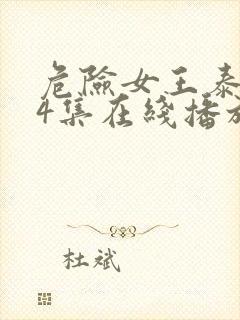 危險女王泰
4集在綫播放
杜斌